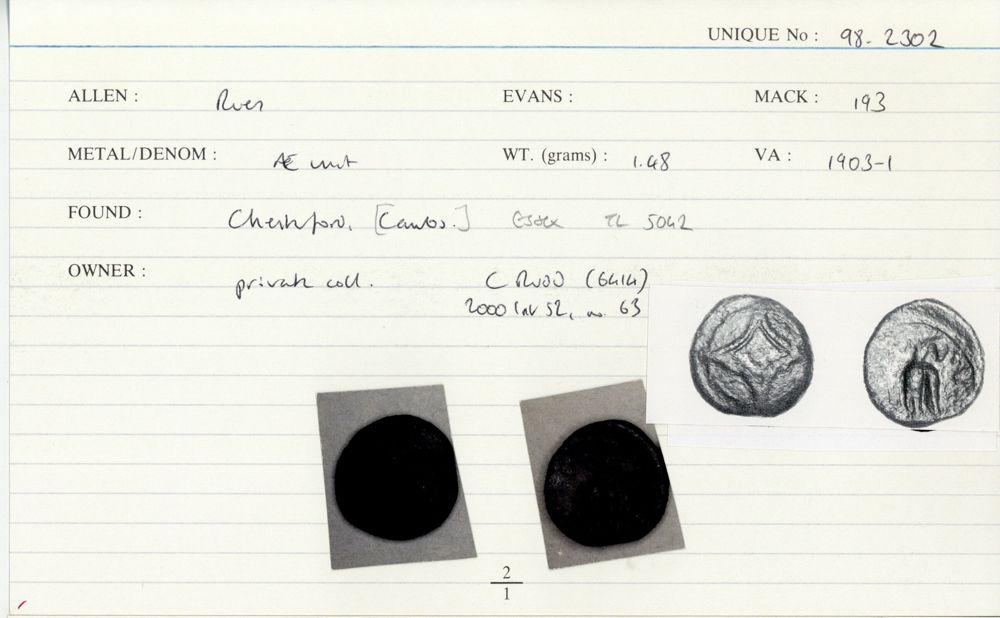 UNIQUE No : 98-2302
ALLEN : Rues EVANS : MACK : 193
METAL/DENOM : Æ unit WT. (grams) : 1.48 VA : 1903-1
FOUND : Chesterford, [Cambs.] Essex TL 5042
OWNER : private coll. C RUDD (6414)
2000 list 52, no. 63
2
1